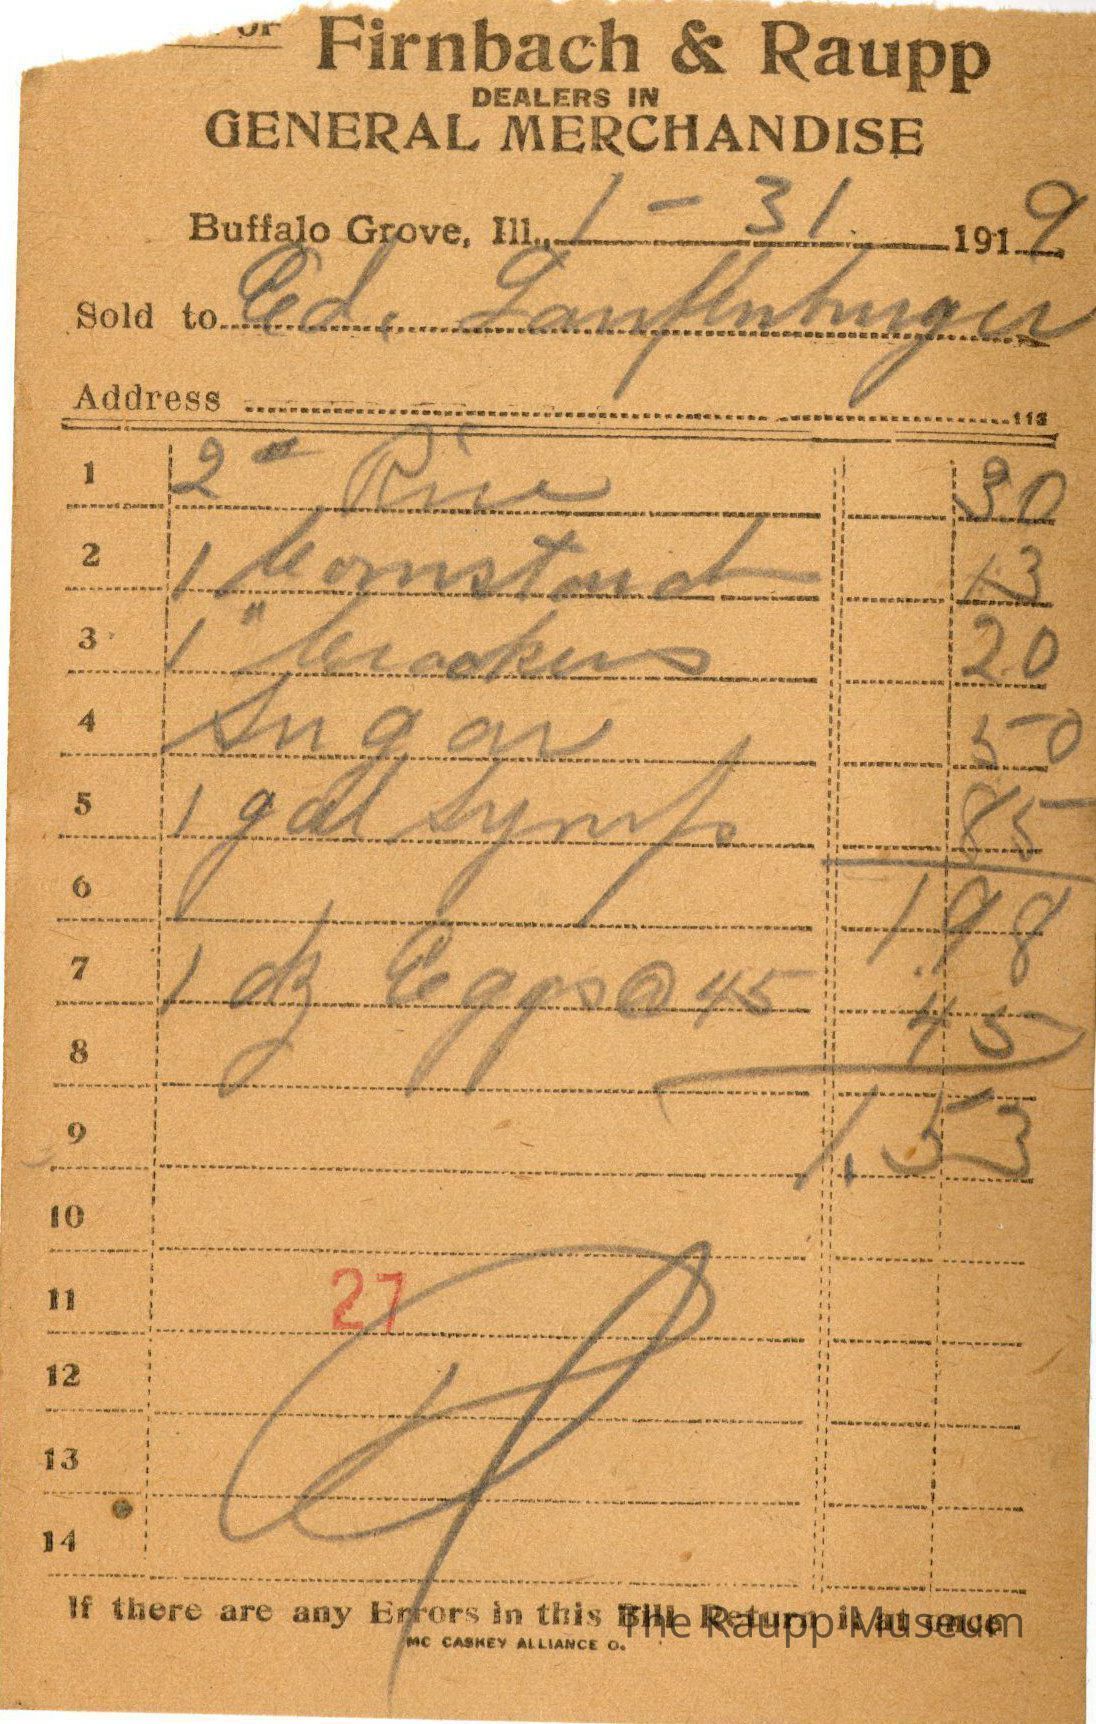 OF
Firnbach & Raupp
DEALERS IN
GENERAL MERCHANDISE
Buffalo Grove, Ill., 1 - 31 1919
Sold to Ed. Lauffenburger
Address
113
1 2 " Rice 30
2 1 Cornstarch 13
3 1 " Crackers 20
4 Sugar 50
5 1 gal Syrup 85
6 198
7 1 dz Eggs @ 45
8 45
9 1.53
10
11 27
12
13
14
If there are any Errors in this Bill Return it at once
The Raupp Museum
MC CASKEY ALLIANCE O.